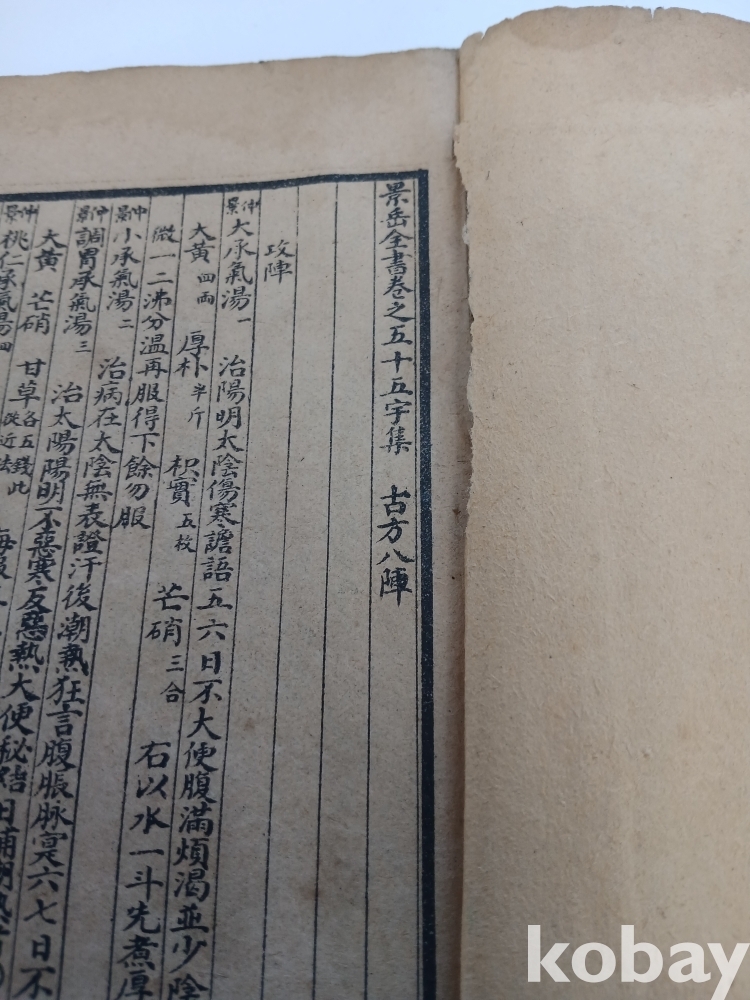 景岳全書卷之五十五宇集 古方八陣
攻陣
仲景大承氣湯一 治陽明太陰傷寒譫語五六日不大便腹滿煩渴並少陰
大黃四兩 厚朴半斤 枳實五枚 芒硝三合 右以水一斗先煮厚
微一二沸分溫再服得下餘勿服
仲景小承氣湯二 治病在太陰無表證汗後潮熱狂言腹脹脉寔六七日不
仲景調胃承氣湯三 治太陽陽明不惡寒反惡熱大便秘結日晡潮熱者
大黃 芒硝 甘草各五錢此從近法 每服
仲景桃仁承氣湯四
kobay